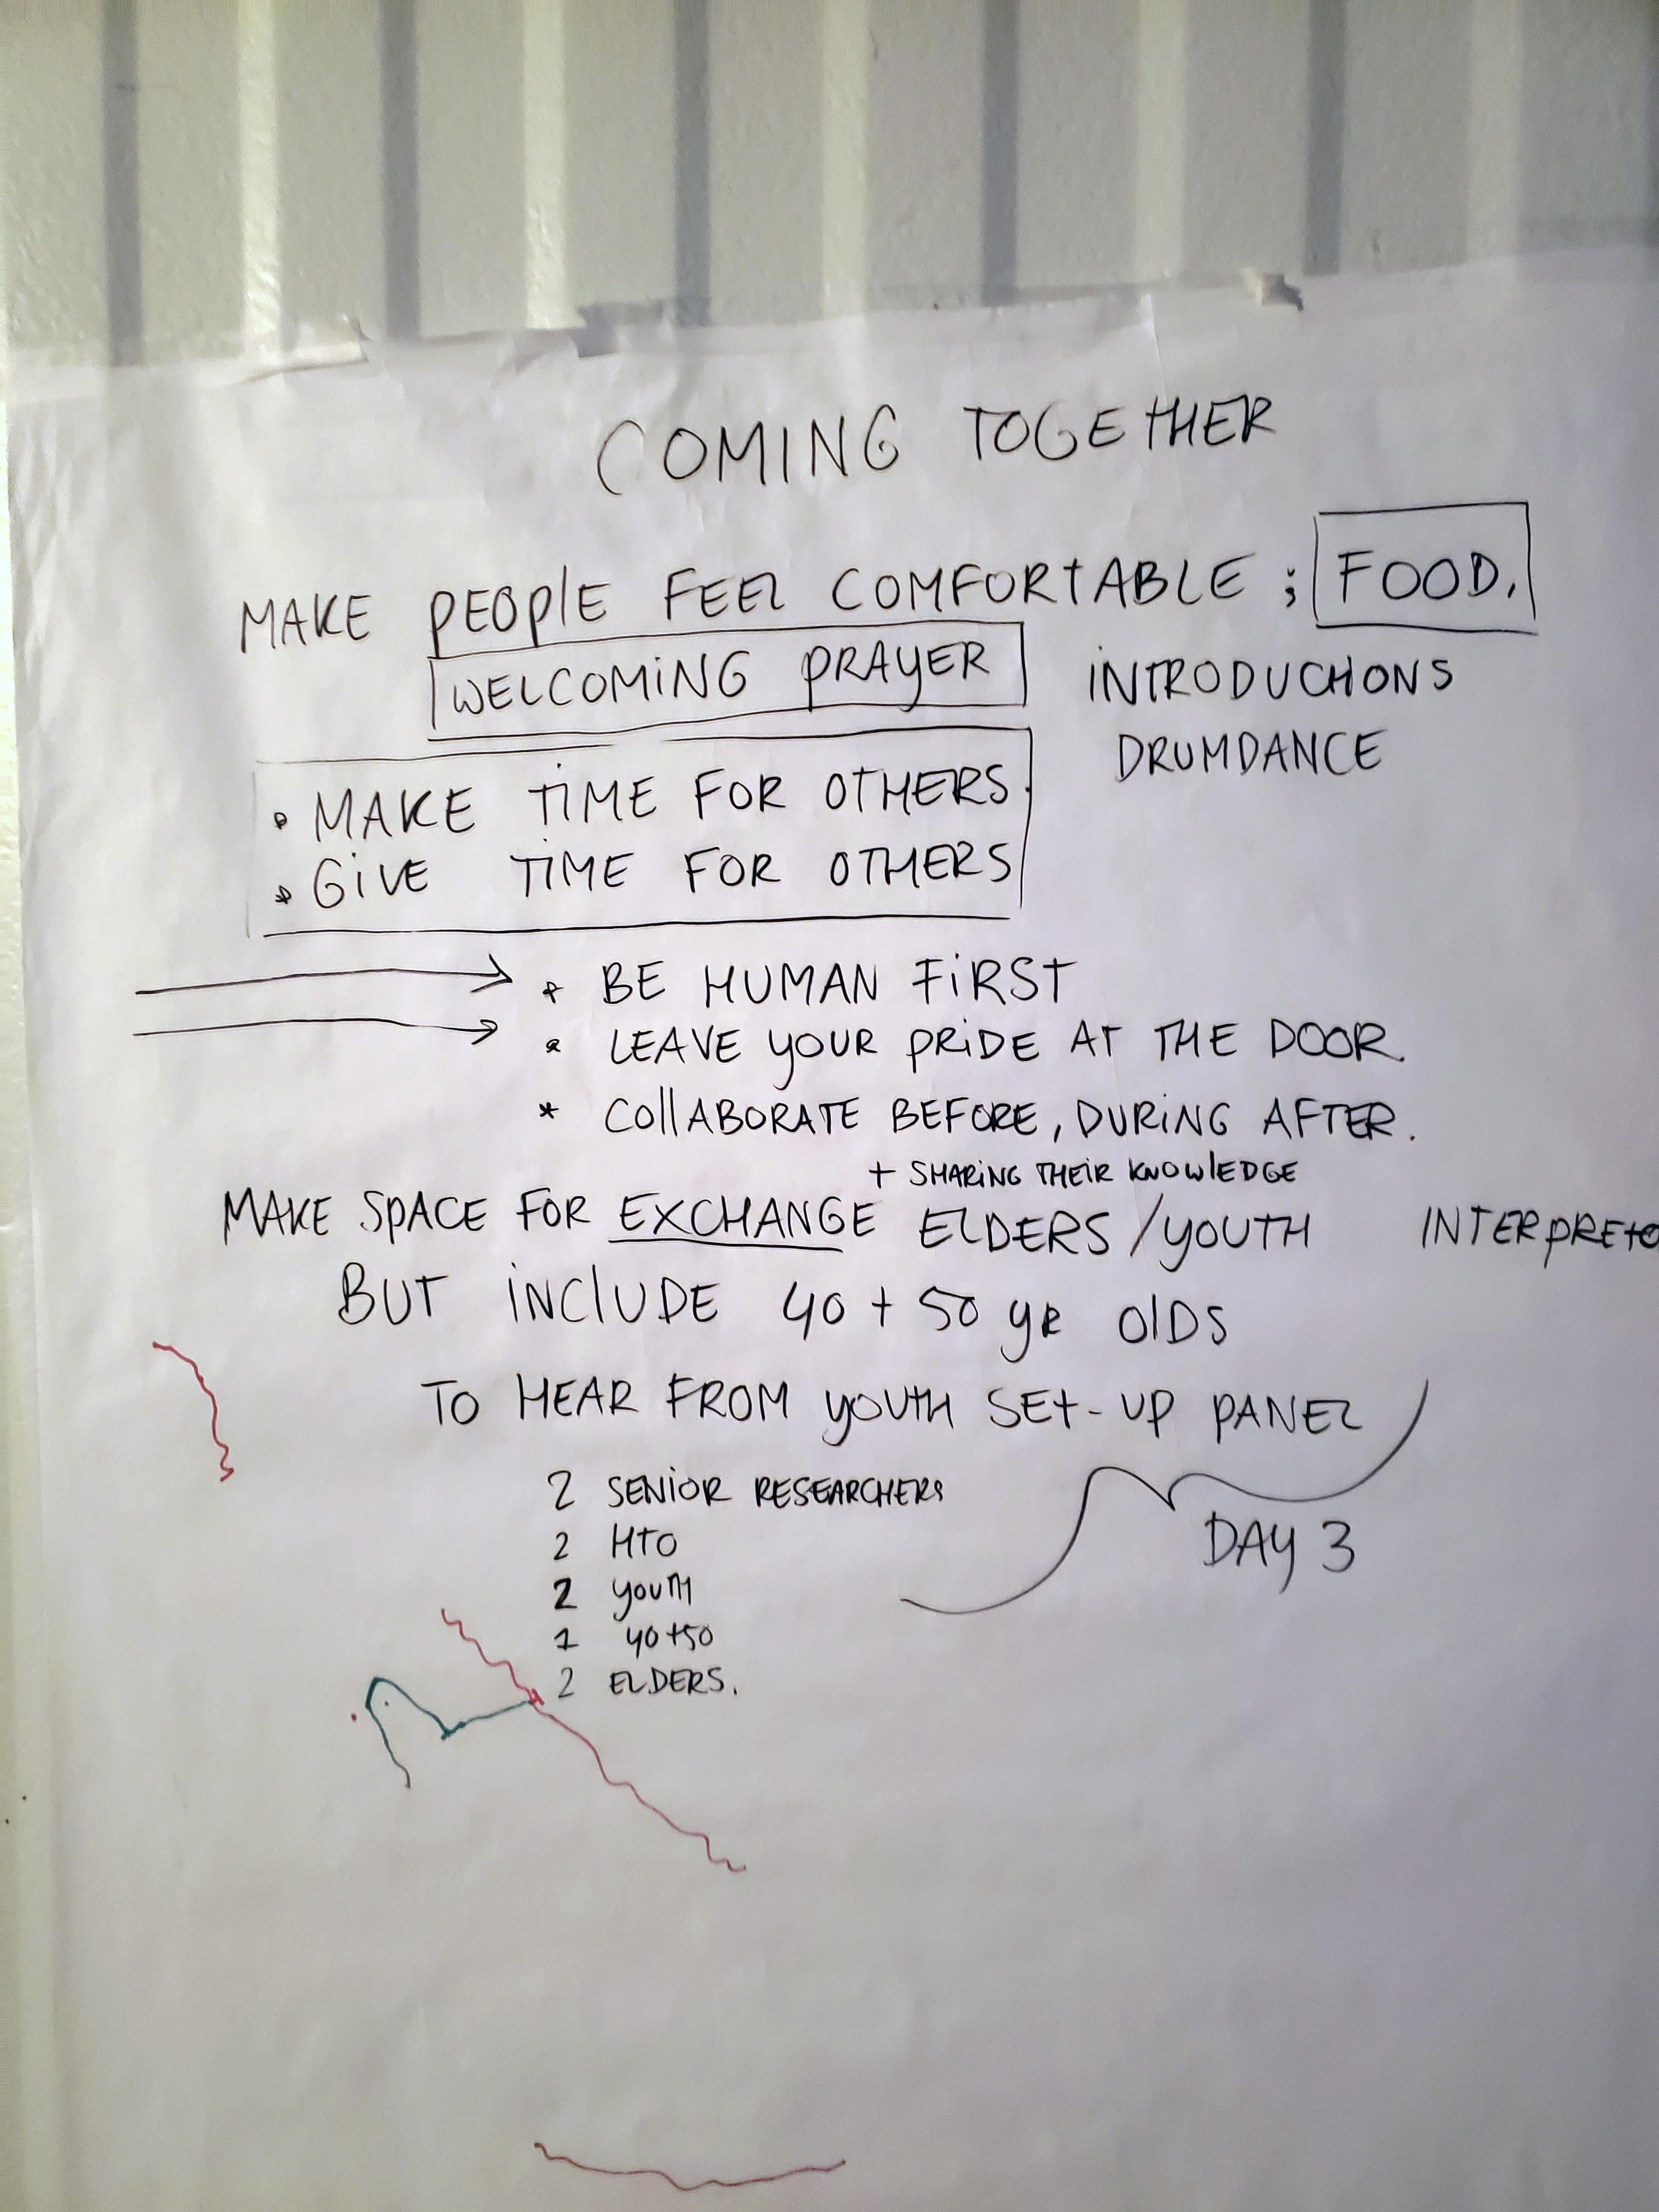 COMING TOGETHER
MAKE PEOPLE FEEL COMFORTABLE ; FOOD.
WELCOMING PRAYER INTRODUCTIONS
DRUMDANCE
• MAKE TIME FOR OTHERS.
• GIVE TIME FOR OTHERS
* BE HUMAN FIRST
* LEAVE YOUR PRIDE AT THE DOOR.
* COllABORATE BEFORE, DURING AFTER.
+ SHARING THEIR KNOWLEDGE
MAKE SPACE FOR EXCHANGE ELDERS / YOUTH INTERPRETO
BUT INCLUDE 40 + 50 YR OLDS
TO HEAR FROM YOUTH SET-UP PANEL
2 SENIOR RESEARCHERS
2 HTO
2 YOUTH
1 40+50
2 ELDERS.
DAY 3